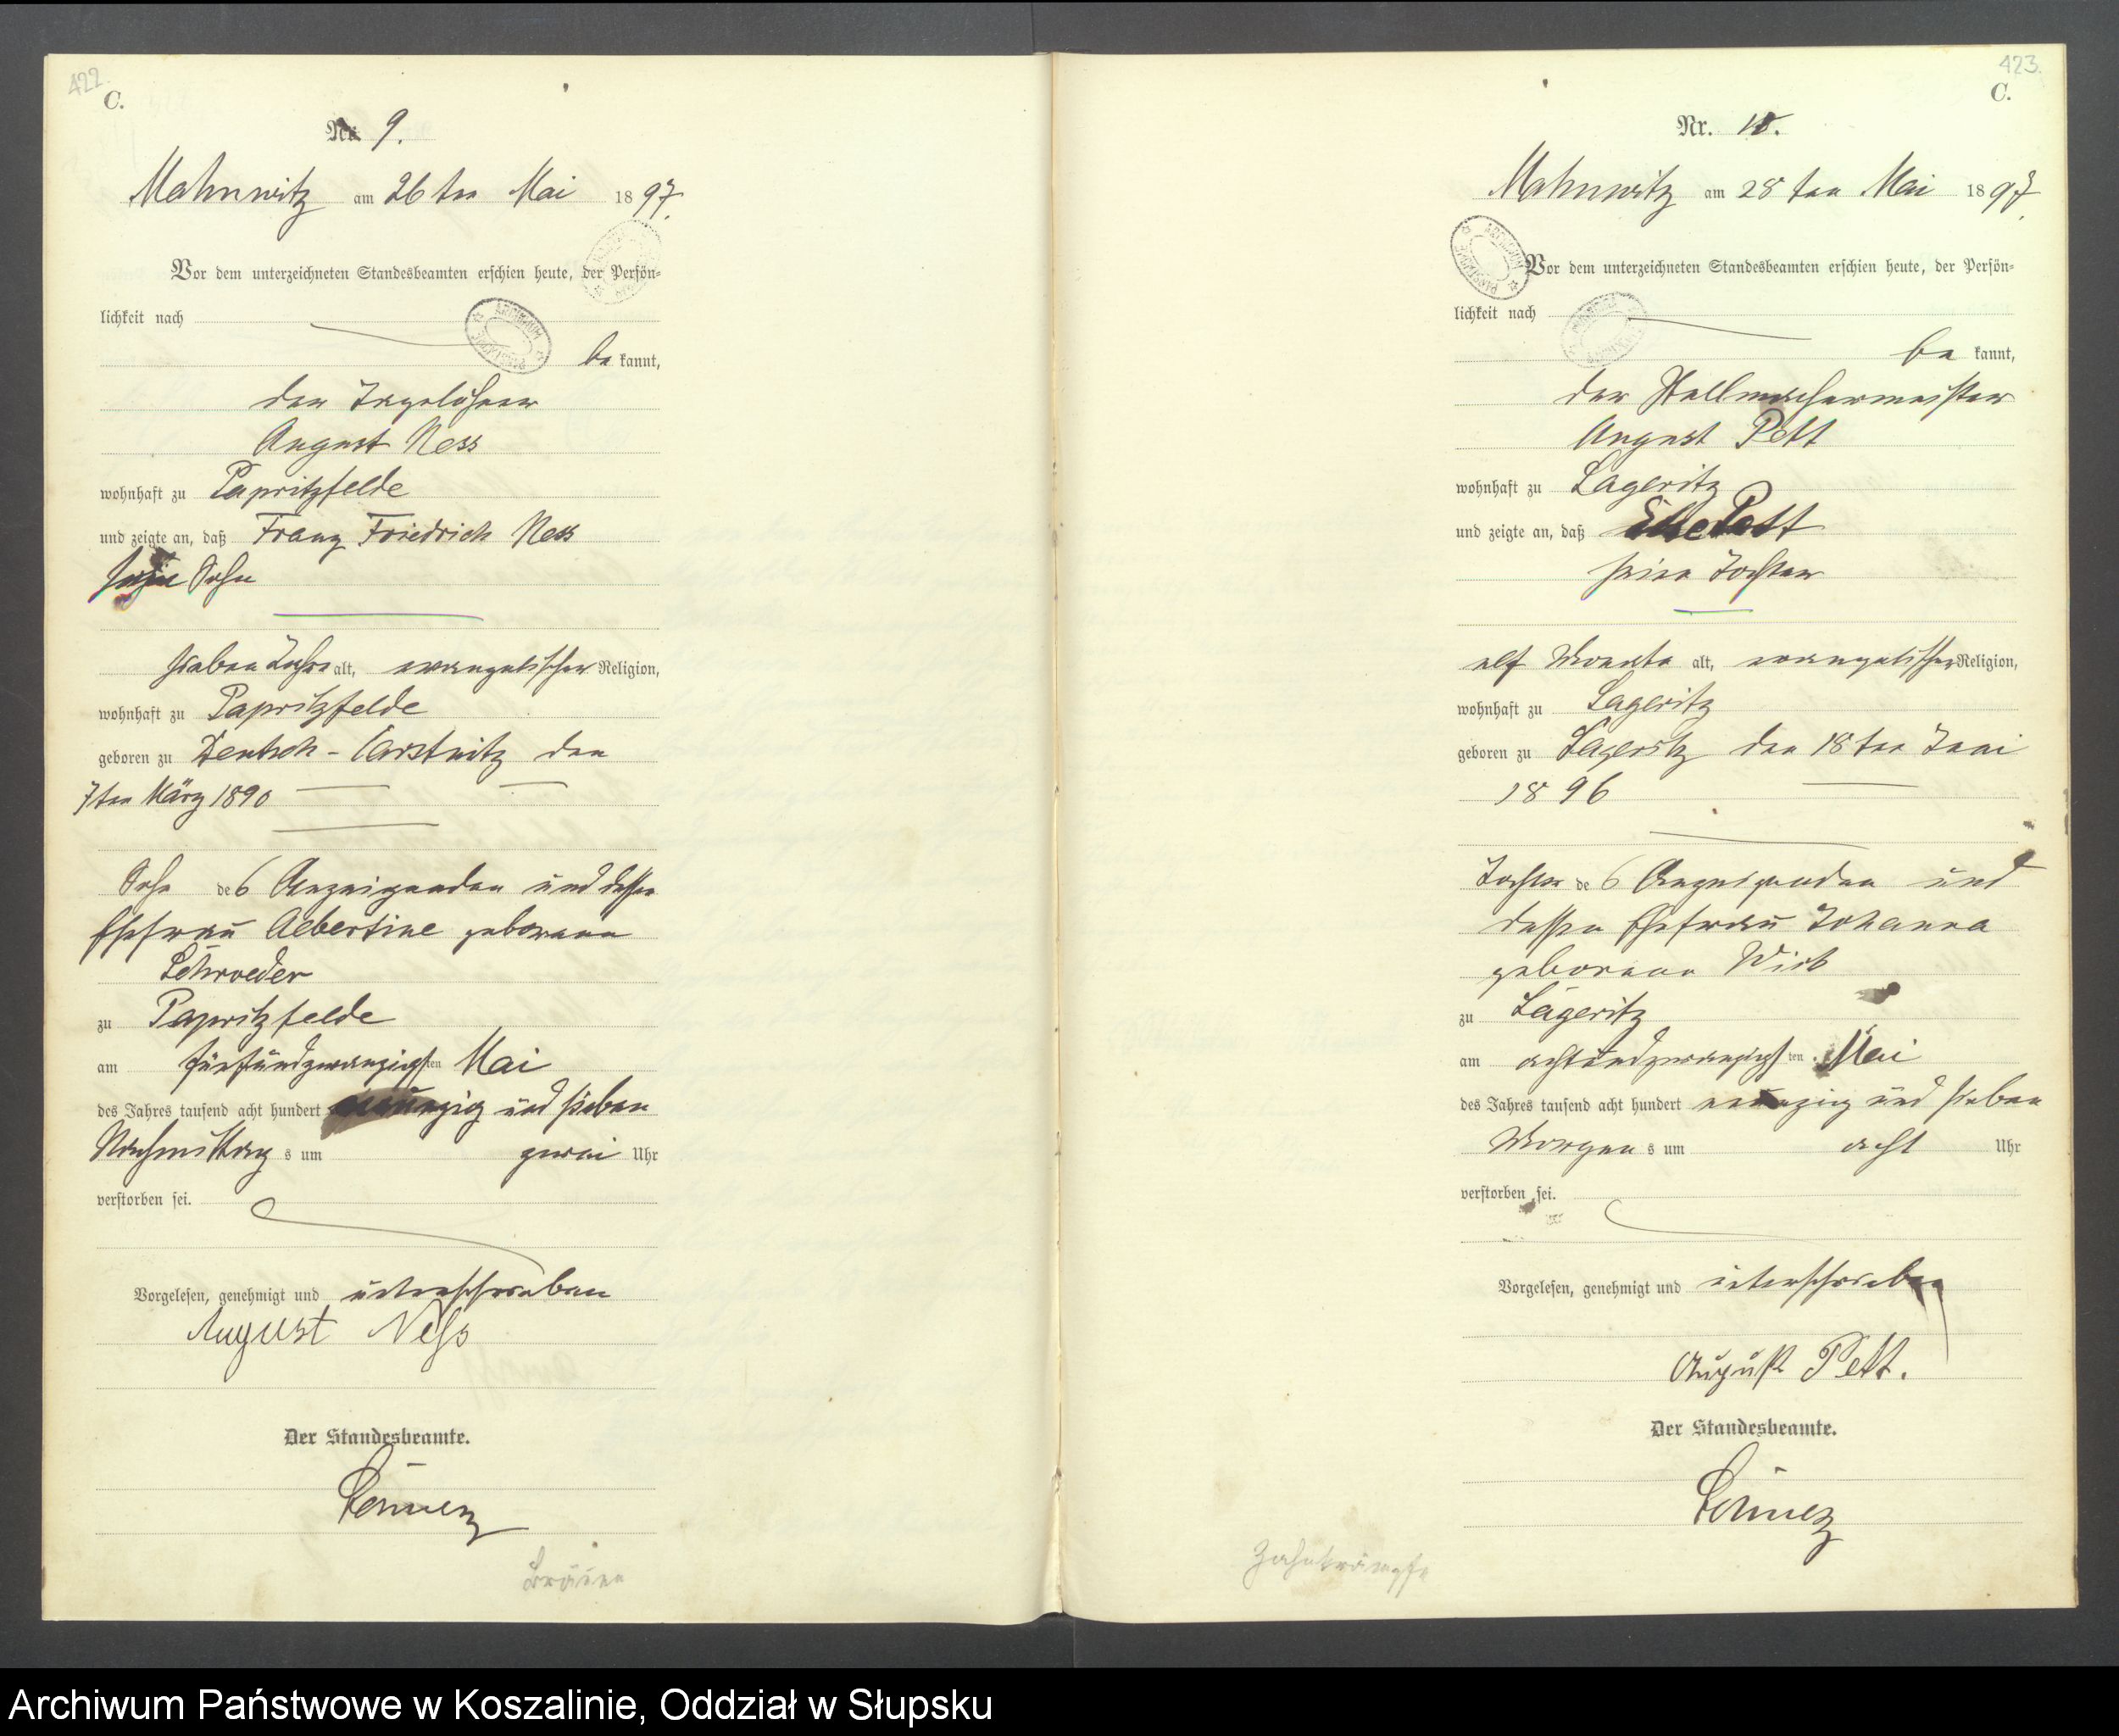 422.
C.
Nr. 9.
Mahnwitz am 26 ten Mai 1897.
Vor dem unterzeichneten Standesbeamten erschien heute, der Persön-
lichkeit nach
be kannt,
der Tagelöhner
August Ness
wohnhaft zu Papritzfelde
und zeigte an, daß Franz Friedrich Ness
sein Sohn
sieben Jahre alt, evangelischer Religion,
wohnhaft zu Papritzfelde
geboren zu Deutsch-Carstnitz den
7ten März 1890
Sohn des Anzeigenden und dessen
Ehefrau Albertine geborene
Schroeder
zu Papritzfelde
am fünfundzwanzigsten Mai
des Jahres tausend acht hundert neunzig und sieben
Nachmittags um zwei Uhr
verstorben sei.
Vorgelesen, genehmigt und unterschrieben
August Neß
Der Standesbeamte.
Bräune
423.
C.
Nr. 10.
Mahnwitz am 28 ten Mai 1897.
Vor dem unterzeichneten Standesbeamten erschien heute, der Persön-
lichkeit nach
be kannt,
der Stellmachermeister
August Pett
wohnhaft zu Lageritz
und zeigte an, daß Else Pett
seine Tochter
elf Monate alt, evangelischer Religion,
wohnhaft zu Lageritz
geboren zu Lageritz den 18 ten Juni
1896
Tochter des Anzeigenden und
dessen Ehefrau Johanna
geborene
zu Lageritz
am achtundzwanzigsten Mai
des Jahres tausend acht hundert neunzig und sieben
Morgens um acht Uhr
verstorben sei.
Vorgelesen, genehmigt und unterschrieben
August Pett.
Der Standesbeamte.
Zahnkrämpfe
Archiwum Państwowe w Koszalinie, Oddział w Słupsku